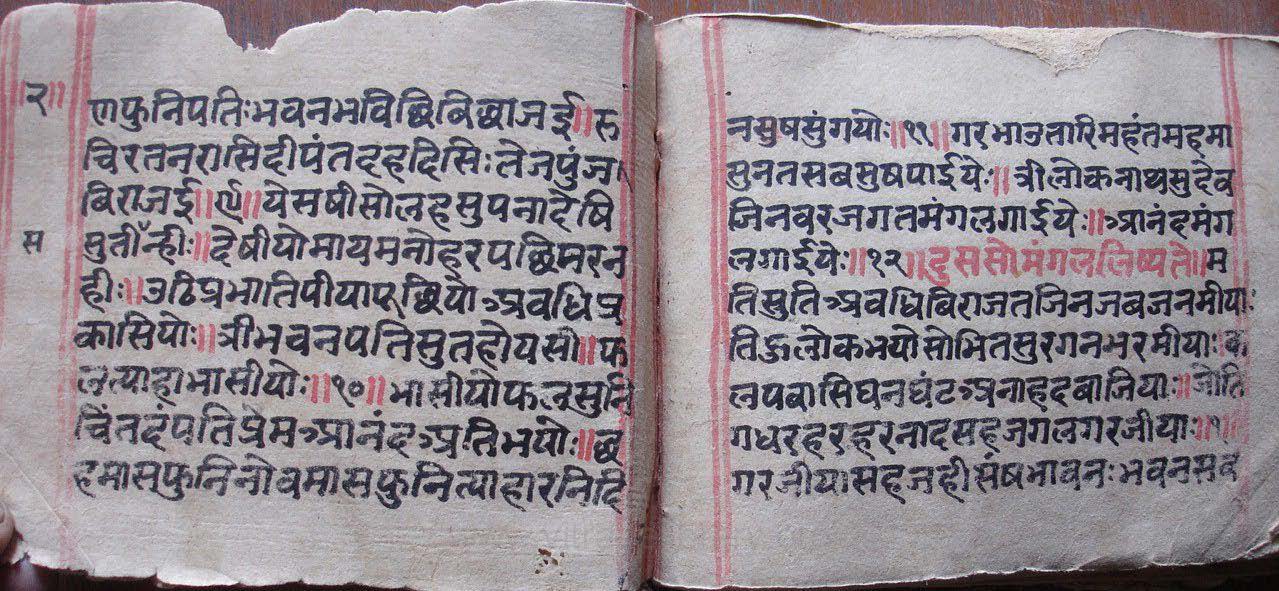 २
णफुनिपतिःभवनभविछिबिछाजई॥रु
चिरतनरासिदीपंतदहदिसिःतेजपुंज
बिराजई॥९॥येसषीसोलहसुपनादेषि
स
सुतीँन्हीः॥देषीयोमायमनोहरपछिमरन
हीः॥उठिप्रभातिपीयापूछियोअवधिप्र
कासियोः॥त्रीभवनपतिसुतहोयसी॥फ
लत्याहाभासीयोः॥१०॥भासीयोफलसुनि
चिंतदंपतिप्रेमआनंदअतिभयोः॥छ
हमासफुनिनोवमासफुनित्याहारनिदि
नसुषसुंगयोः॥११॥गरभाउतारिमहंतमहमा
सुनतसबसुषपाईयेः॥त्रीलोकनाथसुदेव
जिनवरजगतमंगलगाईयेः॥आनंदमंग
लगाईयेः॥१२॥दुससोमंगललिष्यते॥म
तिस्रुतिअवधिबिराजतजिनजबजनमीयाः
तिऊलोकभयोसोभितसुरगनभरमीयाः क
लपबासिघनघंटअनाहदबाजियाः॥जोति
गधरहरहरनादसहजगलगरजीयाः॥१॥
गरजीयासहजहीसंषभावनःभवनसब